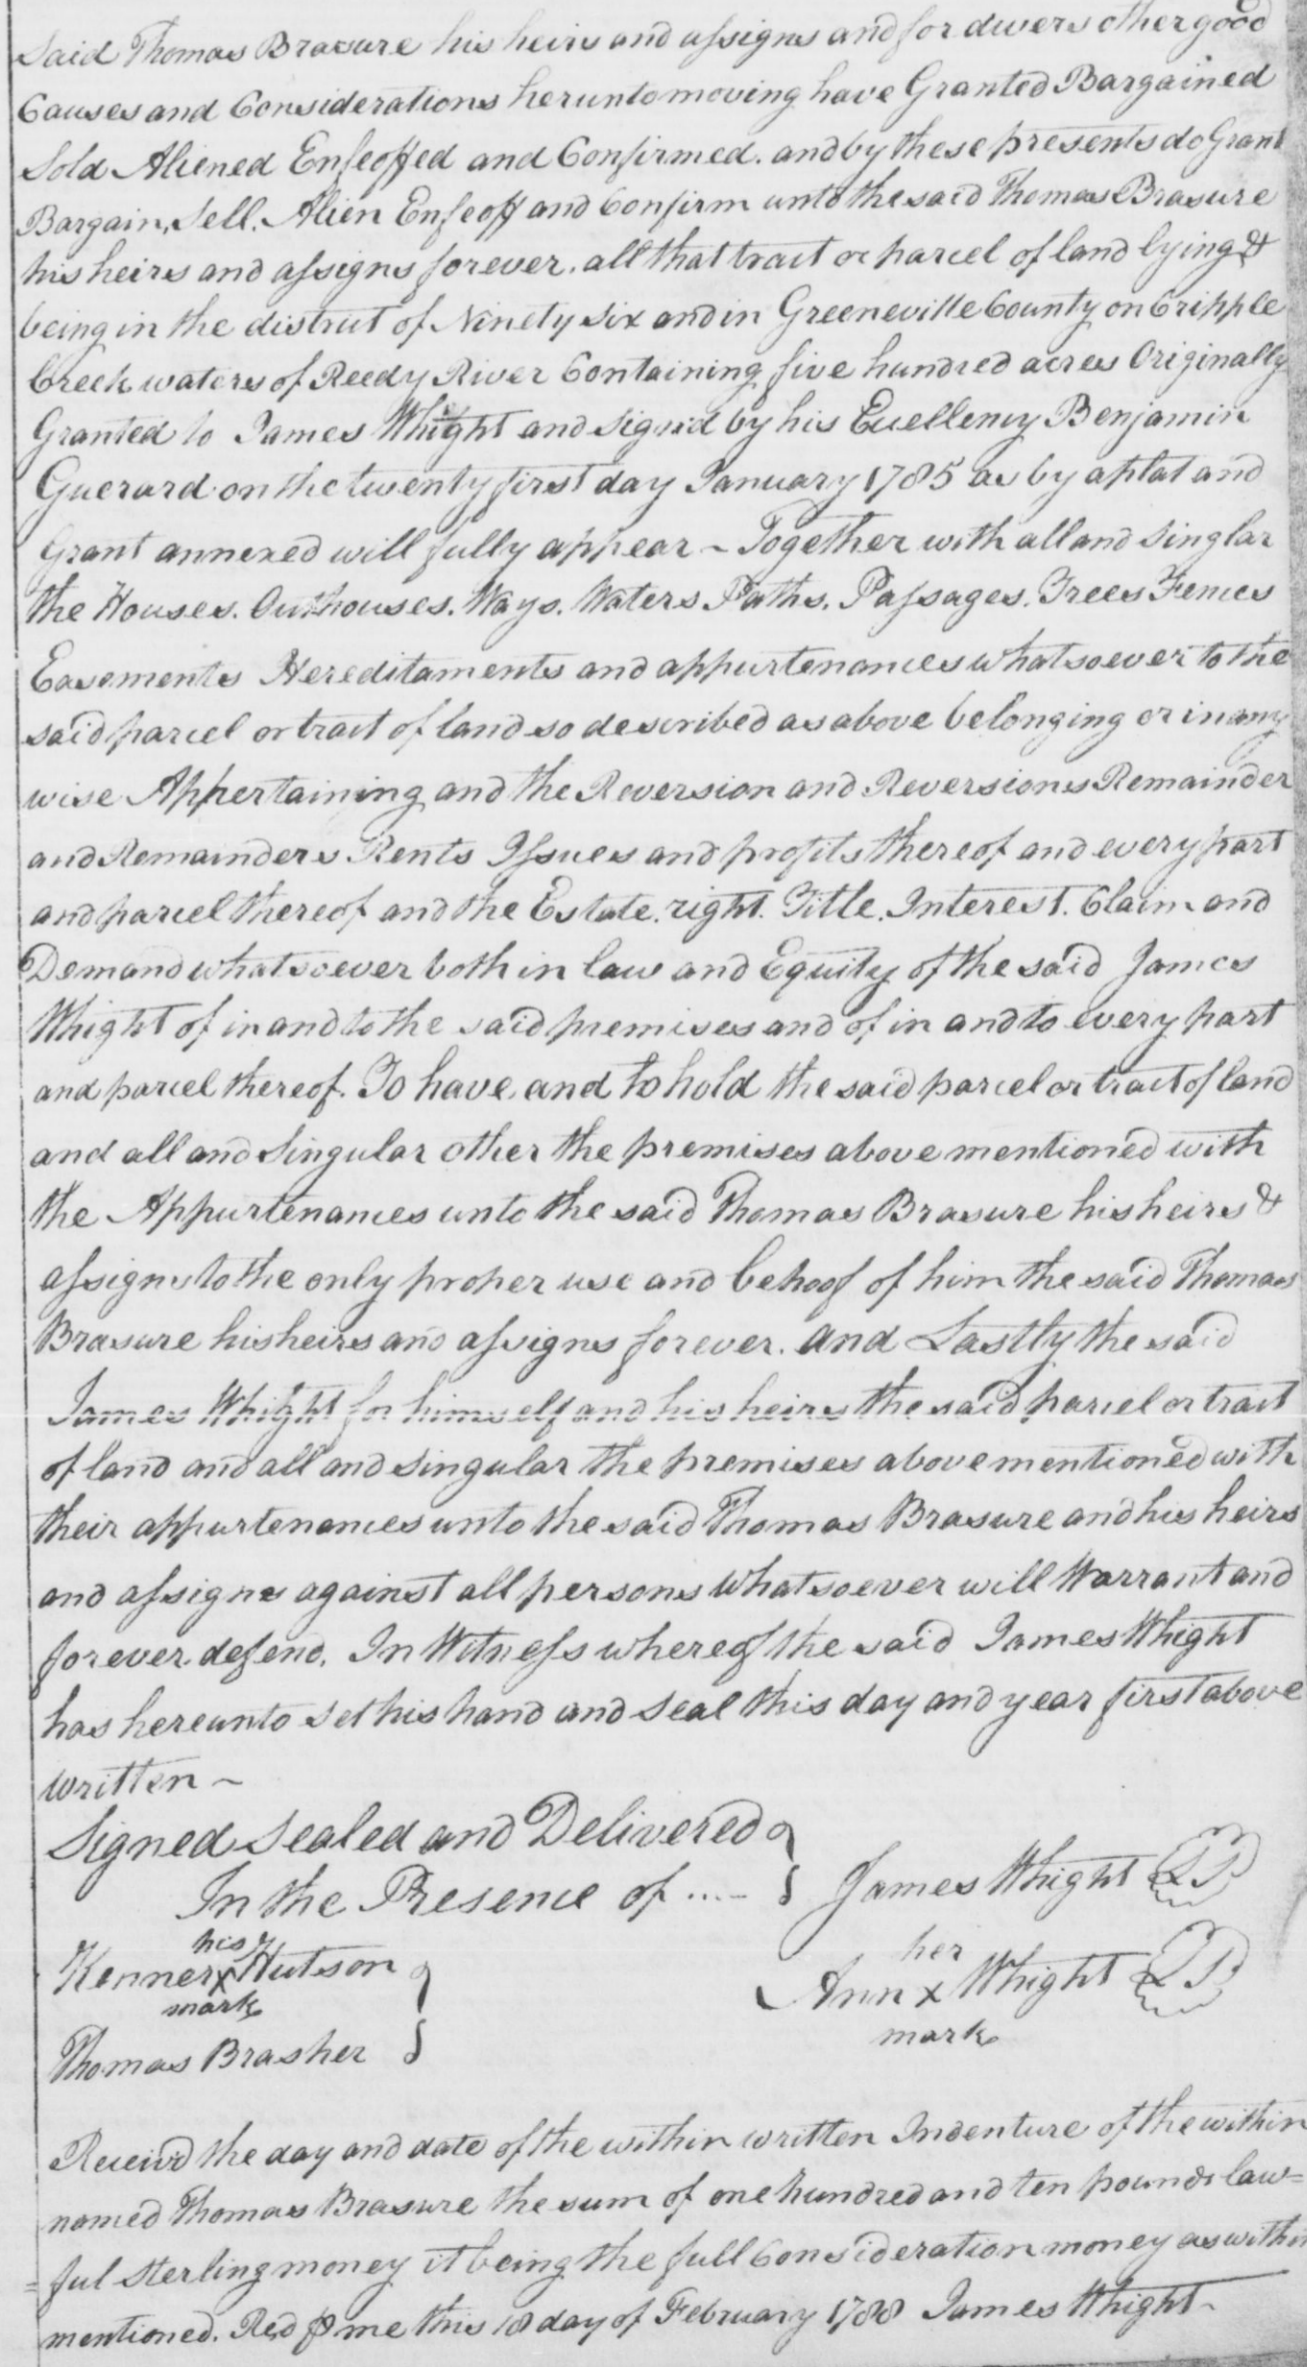 Said Thomas Brasure his heirs and assigns and for divers other good
Causes and Considerations herunto moving have Granted Bargained
Sold Aliened Enfeoffed and Confirmed. and by these presents do Grant
Bargain, Sell. Alien Enfeoff and Confirm unto the said Thomas Brasure
his heirs and assigns forever. all that tract or parcel of land lying &
being in the district of Ninety Six and in Greeneville County on Cripple
Creek waters of Reedy River Containing five hundred acres Originally
Granted to James Whight and signid by his Excellency Benjamin
Guerard on the twenty first day January 1785 as by a plat and
Grant annexed will fully appear ~ Together with all and Singlar
the Houses. Outhouses. Ways. Waters Paths. Passages. Trees Fences
Easements Hereditaments and appurtenances whatsoever to the
said parcel or tract of land so described as above belonging or in any
wise Appertaining and the Reversion and Reversions Remainder
and Remainders Rents Issues and profits thereof and every part
and parcel thereof and the Estate. right. Title. Interest. Claim and
Demand whatsoever both in law and Equity of the said James
Whight of in and to the said premises and of in and to every part
and parcel thereof. To have and to hold the said parcel or tract of land
and all and Singular other the premises above mentioned with
the Appurtenances unto the said Thomas Brasure his heirs &
assigns to the only proper use and behoof of him the said Thomas
Brasure his heirs and assigns forever. and Lastly the said
James Whight for himself and his heirs the said parcel or tract
of land and all and singular the premises above mentioned with
their appurtenances unto the said Thomas Brasure and his heirs
and assigns against all persons whatsoever will Warrant and
forever defend. In Witness whereof the said James Whight
has hereunto set his hand and seal this day and year first above
written ~
Signed Sealed and Delivered
In the Presence of .... James Whight LS
Kenner his x mark Hutson
Ann her x mark Whight LS
Thomas Brasher
Receivd the day and date of the within written Indenture of the within
named Thomas Brasure the sum of one hundred and ten pounds law=
=ful Sterling money it being the full Consideration money as within
mentioned. Red ⅌ me this 18 day of February 1788 James Whight